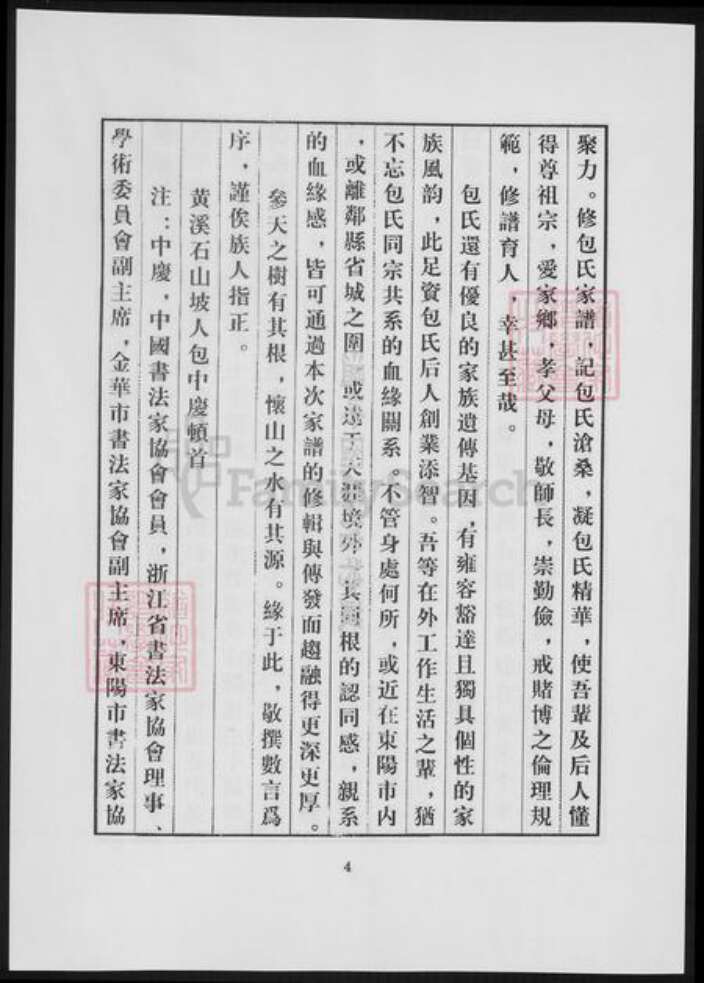 聚力。修包氏家譜，記包氏滄桑，凝包氏精華，使吾輩及后人懂
得尊祖宗，愛家鄉，孝父母，敬師長，崇勤儉，戒賭博之倫理規
範，修譜育人，幸甚至哉。
包氏還有優良的家族遺傳基因，有雍容豁達且獨具個性的家
族風韵，此足資包氏后人創業添智。吾等在外工作生活之輩，猶
不忘包氏同宗共系的血緣關系。不管身處何所，或近在東陽市内
，或離鄰縣省城之圍，或遠于天涯境外，其根的認同感，親系
的血緣感，皆可通過本次家譜的修輯與傳發而趨融得更深更厚。
參天之樹有其根，懷山之水有其源。緣于此，敬撰數言爲
序，謹俟族人指正。
黄溪石山坡人包中慶頓首
注：中慶，中國書法家協會會員，浙江省書法家協會理事、
學術委員會副主席，金華市書法家協會副主席，東陽市書法家協
4
FamilySearch